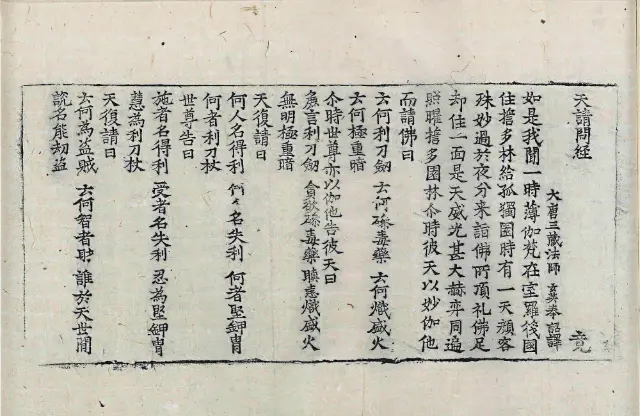 天請問経
大唐三蔵法師 玄奘奉 詔譯
如是我聞一時薄伽梵在室羅筏國
住誓多林給孤獨園時有一天顔容
殊妙過於夜分来詣佛所頂礼佛足
却住一面是天威光甚大赫弈周遍
照曜誓多園林尒時彼天以妙伽他
而請佛曰
云何利刀劒 云何磣毒藥 云何熾盛火
云何極重暗
尒時世尊亦以伽他告彼天曰
麁言利刀劒 貪欲磣毒藥 瞋恚熾盛火
無明極重暗
天復請曰
何人名得利 何人名失利 何者堅鉀冑
何者利刀杖
世尊告曰
施者名得利 受者名失利 忍為堅鉀冑
慧為利刀杖
天復請曰
云何為盗賊 云何智者財 誰於天世間
説名能劫盗